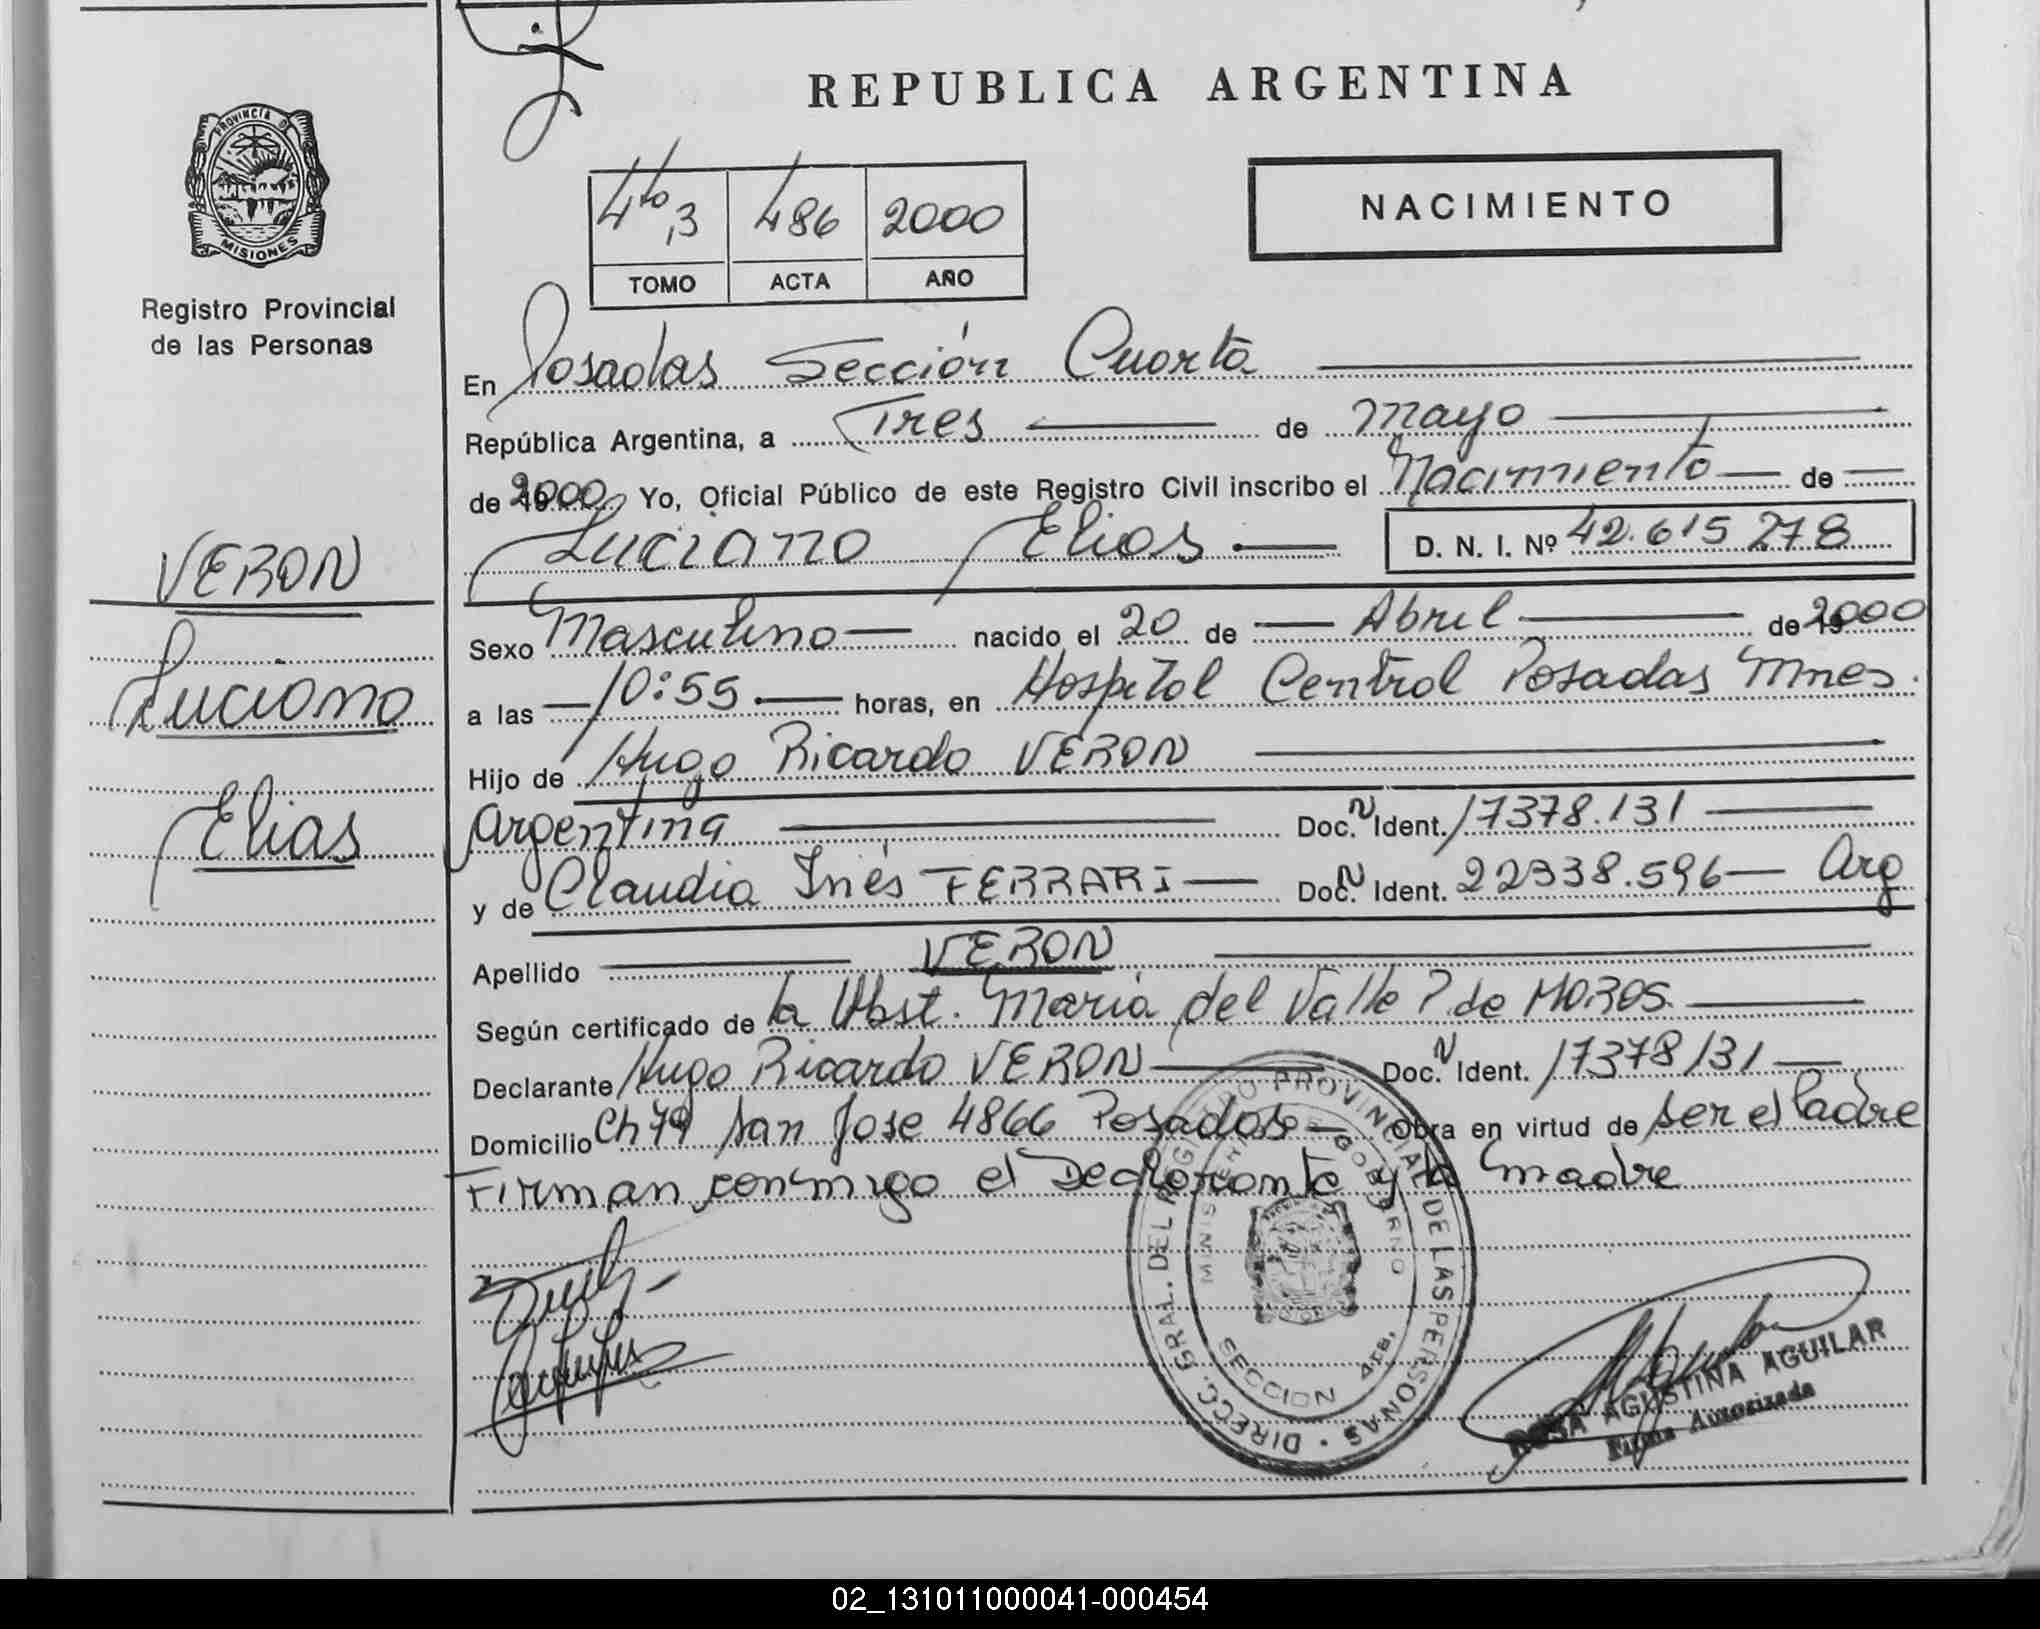 REPUBLICA ARGENTINA
PROVINCIA DE
MISIONES
Registro Provincial
de las Personas
4to 3 486 2000
TOMO ACTA AÑO
NACIMIENTO
En Posadas Sección Cuarta
República Argentina, a Tres de Mayo
de 2000 Yo, Oficial Público de este Registro Civil inscribo el Nacimiento de
Luciano Elias D. N. I. Nº 42.615.278
VERON
Luciano
Elias
Sexo Masculino nacido el 20 de Abril de 2000
a las 10:55 horas, en Hospital Central Posadas Mnes.
Hijo de Hugo Ricardo VERON
Argentina Doc. N Ident. 17378.131
y de Claudia Inés FERRARI Doc. N Ident. 22338.596 Arg
Apellido VERON
Según certificado de la Obst. Maria del Valle P de MOROS
Declarante Hugo Ricardo VERON Doc. N Ident. 17378131
Domicilio Ch 79 San Jose 4866 Posadas Obra en virtud de ser el Padre
Firman conmigo el Declarante y la madre
DIRECC. GRAL. DEL REGISTRO PROVINCIAL DE LAS PERSONAS
MINISTERIO DE GOBIERNO
SECCION 4ta.
ROSA AGUSTINA AGUILAR
Firma Autorizada
02_131011000041-000454